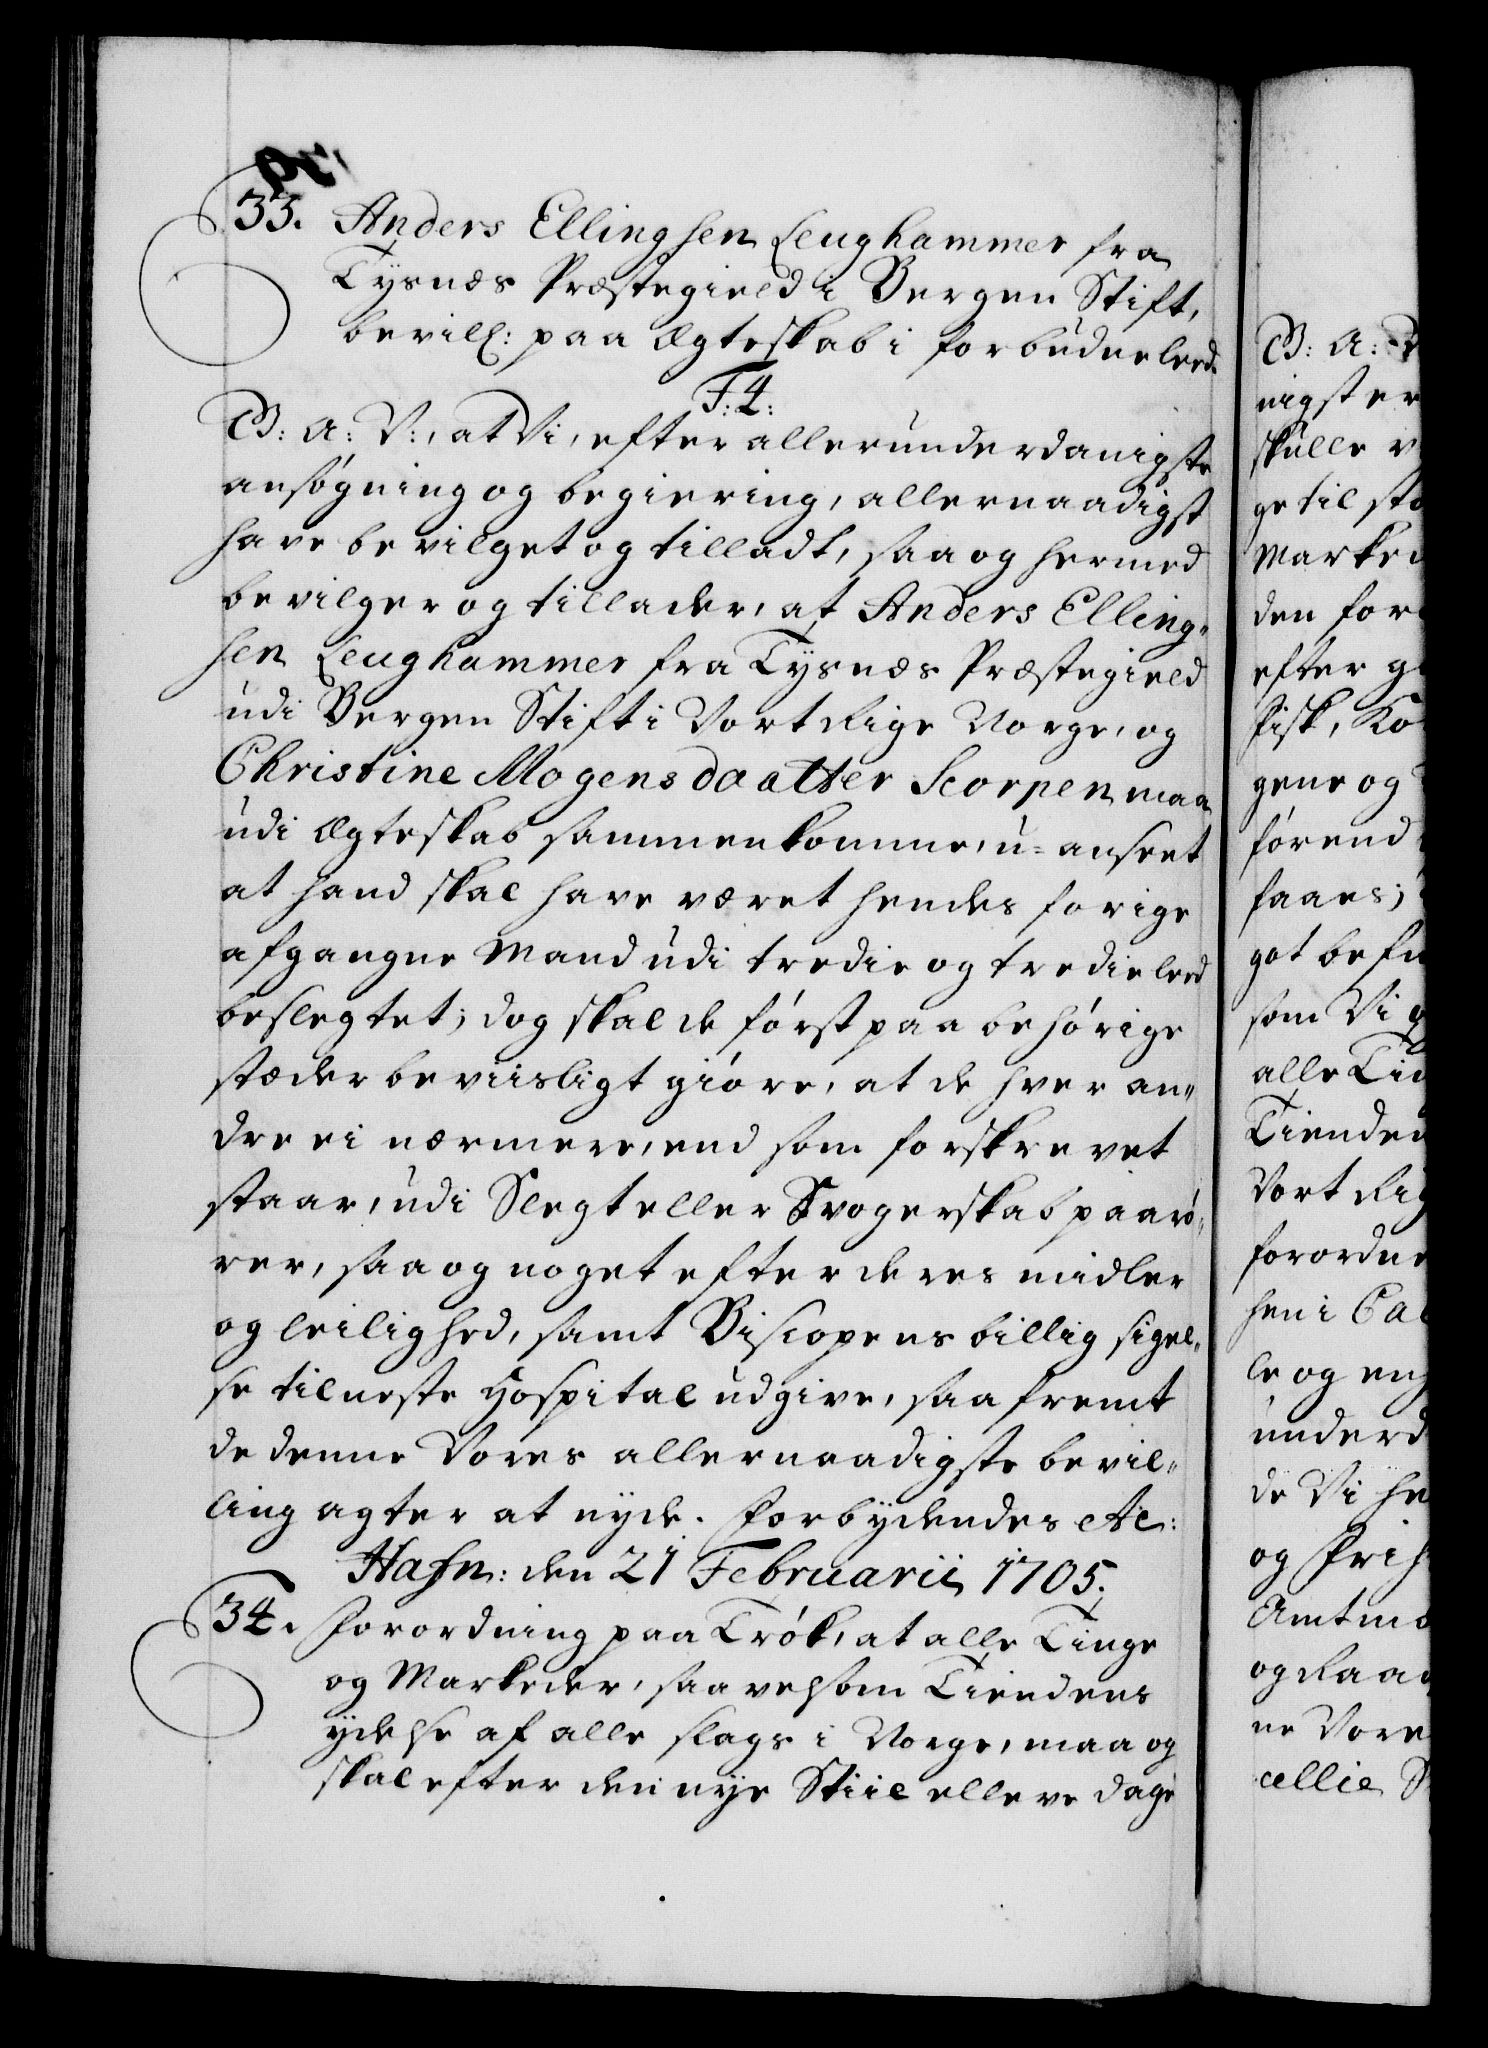 33. Anders Ellingsen Leughammer fra
Tysnæs Præstegield i Bergen Stift,
bevill: paa Ægteskab i forbudne leed.
F: 4:
G: A: V:, at Vi, efter allerunderdanigste
ansøgning og begiering, allernaadigst
have bevilget og tilladt, saa og hermed
bevilger og tillader, at Anders Elling-
sen Leughammer fra Tysnæs Præstegield
udi Bergen Stift i Vort Rige Norge, og
Christine Mogensdaatter Scorpen maa
udi Ægteskab sammenkomme, u-anseet
at hand skal have været hendes forige
afgangne Mand udi tredie og tredie leed
beslegtet; dog skal de først paa behørige
stæder beviisligt giøre, at de hver an-
dre ei nærmere, end som forskrevet
staar, udi Slegt eller Svogerskab paarø-
rer, saa og noget efter deres midler
og leilighed, samt Biscopens billig sigel-
se til neste Hospital udgive, saa fremt
de denne Vores allernaadigste bevil-
ling agter at nyde. Forbydendes etc:
Hafn: den 21 Februarii 1705.
34. Forordning paa Trøk, at alle Tinge
og Markeder, saavelsom Tiendens
ydelse af alle slags i Norge, maa og
skal efter den nye Stiil elleve dage
G: A:
nigst er
skulle
ge til
Marked
den
efter
Fisk,
gene og
førend
faaes;
got
som Vi
alle
Tienden
Vort Rig
forordne
hen i
le og
underd
de Vi
og
Amtm
og Raad
ne Vore
cellie